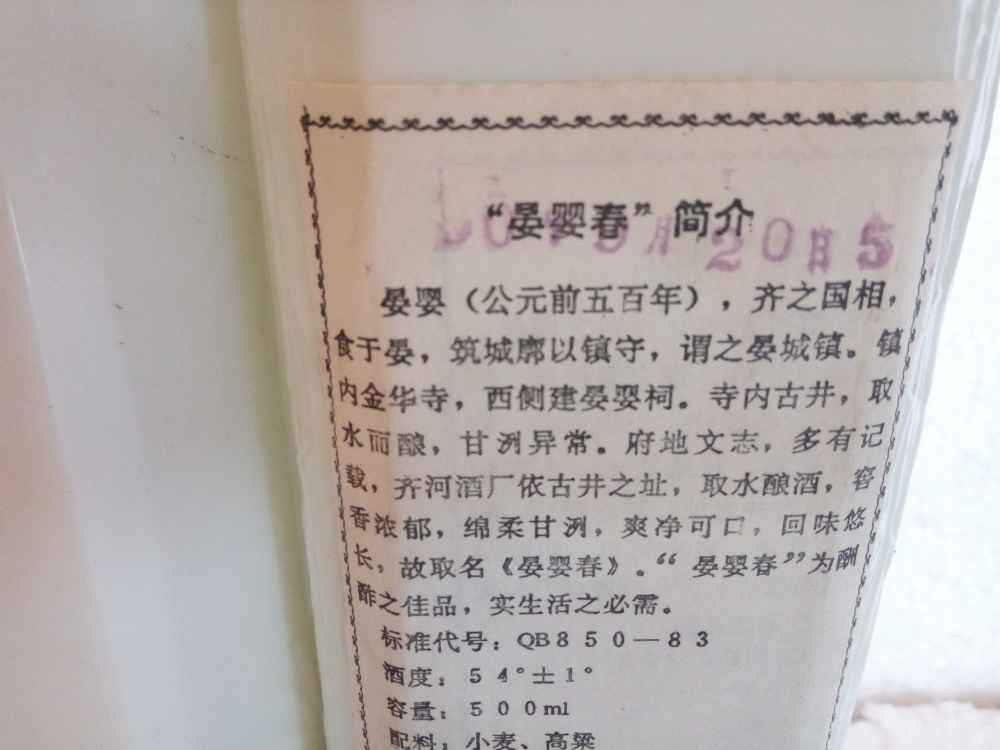 “晏婴春”简介
20日5
晏婴（公元前五百年），齐之国相，
食于晏，筑城廓以镇守，谓之晏城镇。镇
内金华寺，西侧建晏婴祠。寺内古井，取
水而酿，甘洌异常。府地文志，多有记
载，齐河酒厂依古井之址，取水酿酒，窖
香浓郁，绵柔甘洌，爽净可口，回味悠
长，故取名《晏婴春》。“晏婴春”为酬
酢之佳品，实生活之必需。
标准代号：QB850—83
酒度：54°±1°
容量：500ml
配料：小麦、高粱